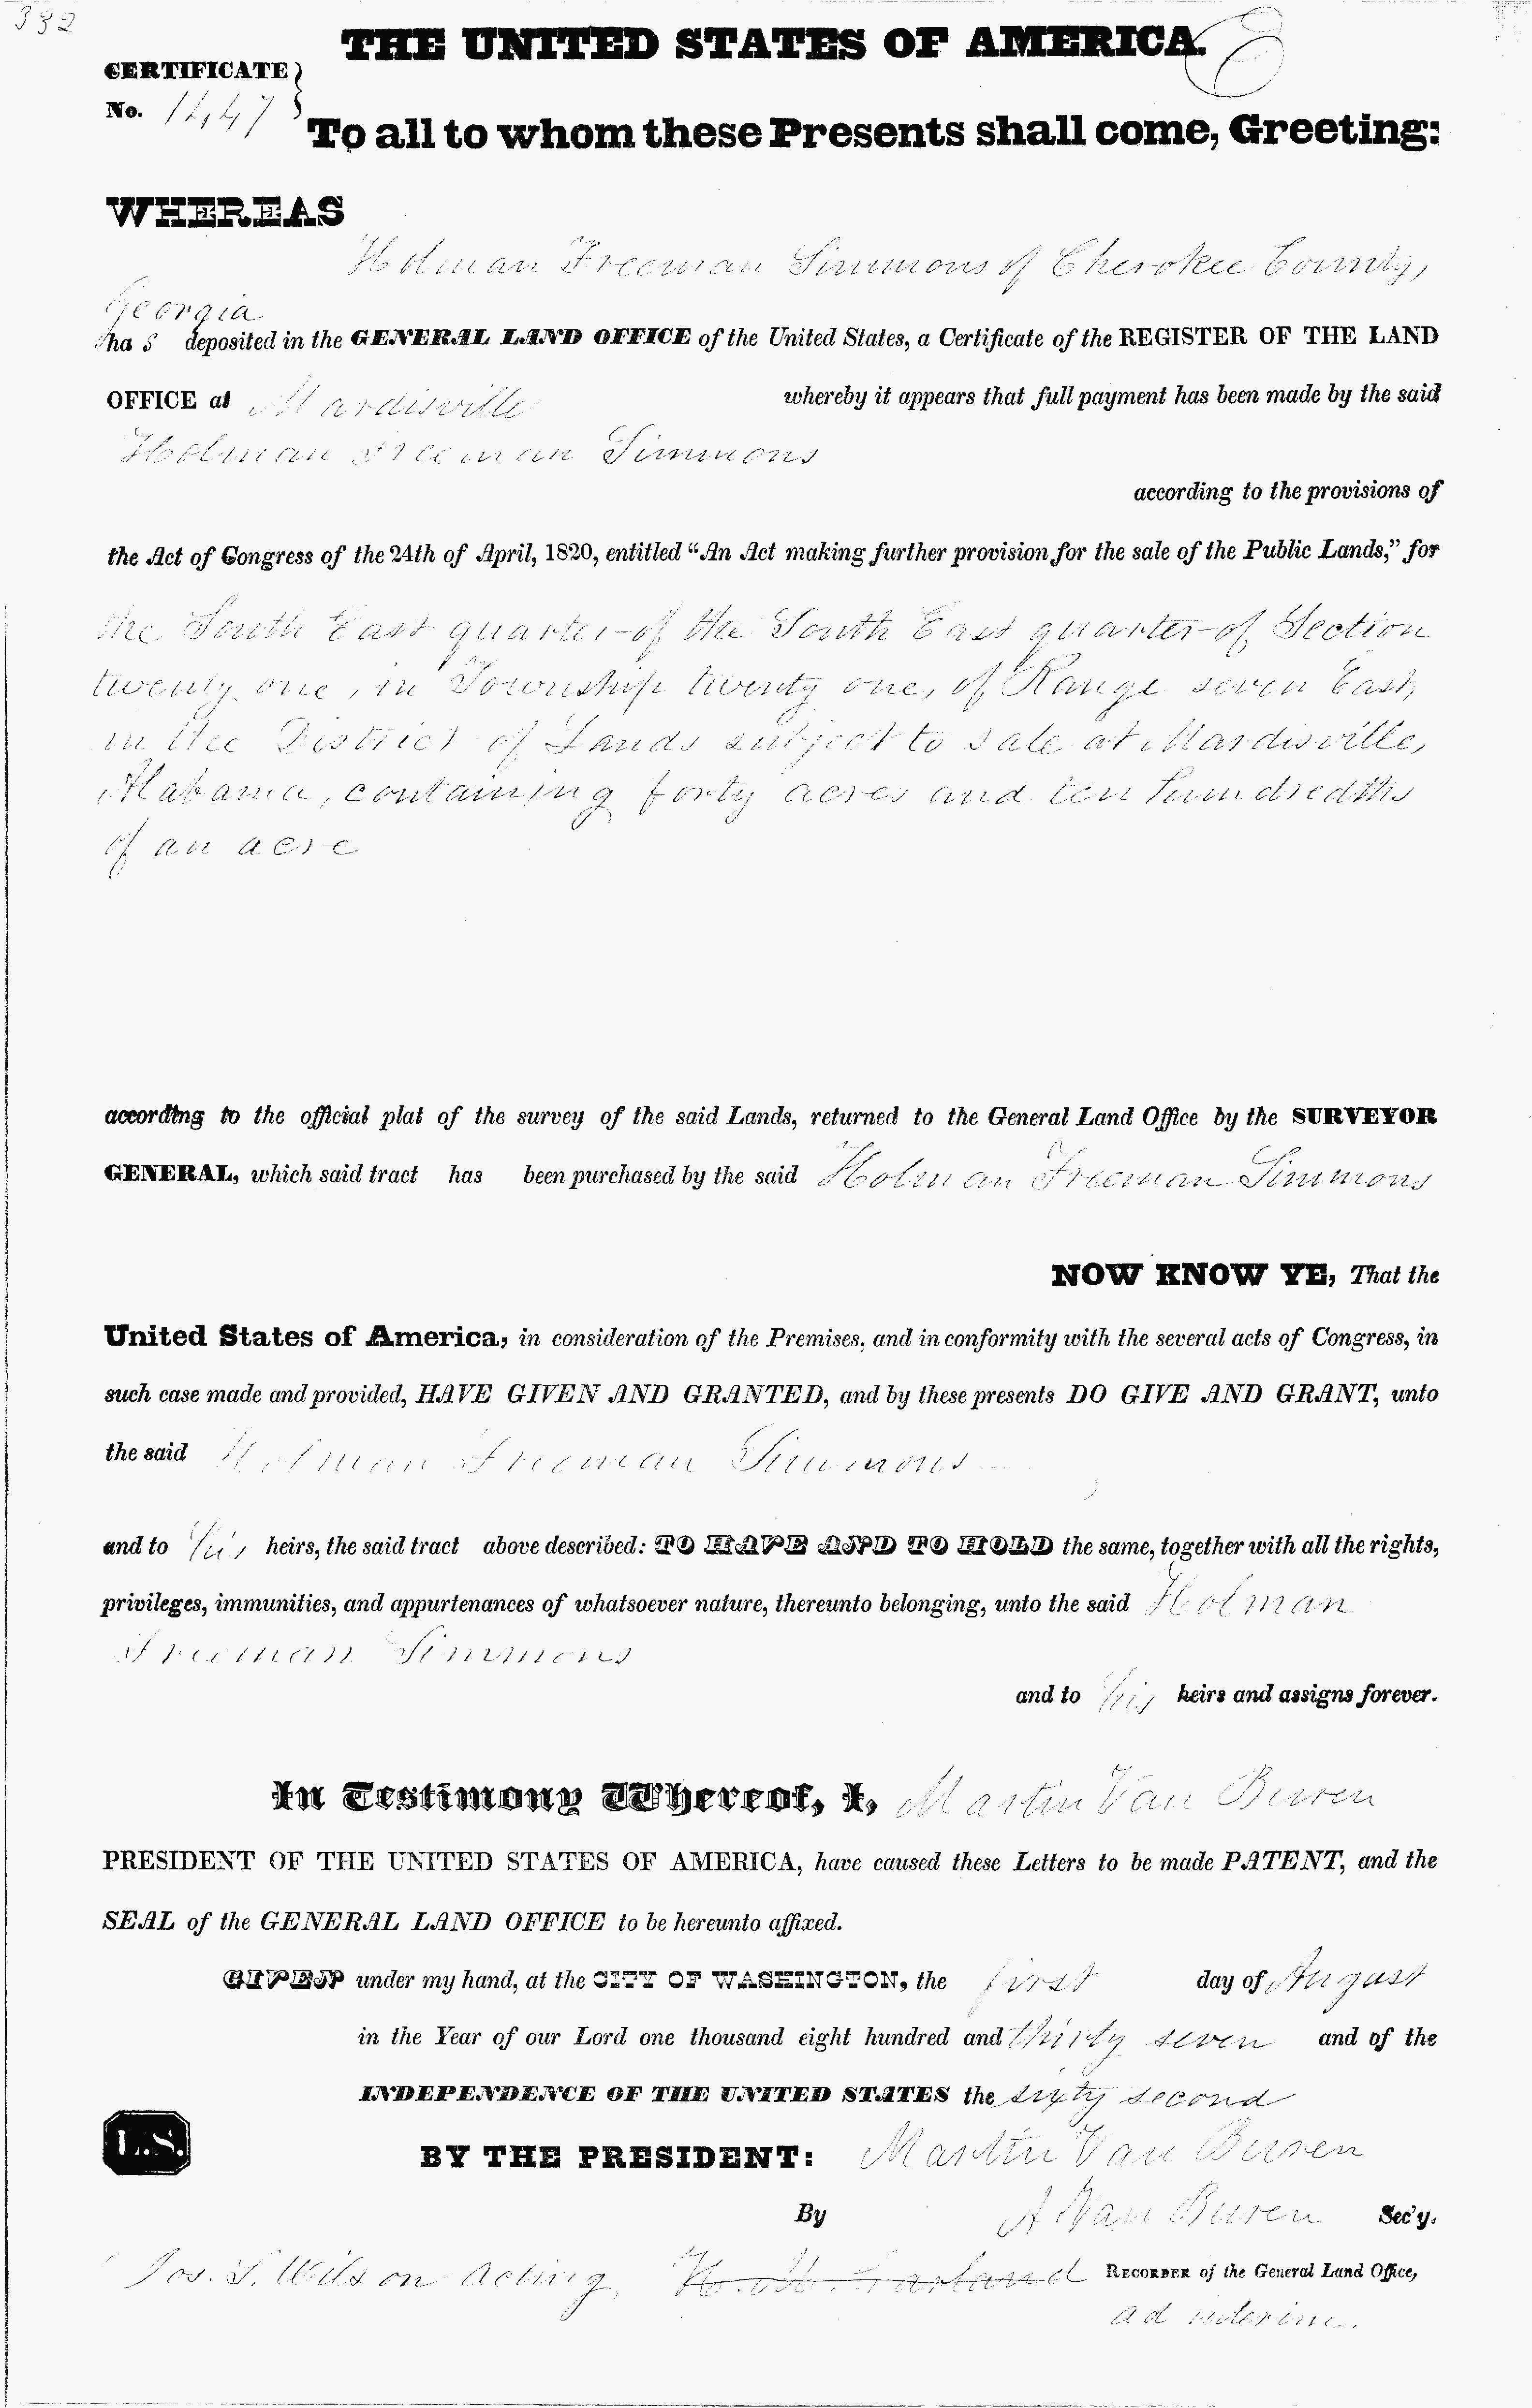 332
THE UNITED STATES OF AMERICA.
CERTIFICATE
No. 1447
To all to whom these Presents shall come, Greeting:
WHEREAS
Holman Freeman Simmons of Cherokee County,
Georgia
ha s deposited in the GENERAL LAND OFFICE of the United States, a Certificate of the REGISTER OF THE LAND
OFFICE at Mardisville whereby it appears that full payment has been made by the said
Holman Freeman Simmons
according to the provisions of
the Act of Congress of the 24th of April, 1820, entitled “An Act making further provision for the sale of the Public Lands,” for
the South East quarter of the South East quarter of Section
twenty one, in Township twenty one, of Range seven East,
in the District of Lands subject to sale at Mardisville,
Alabama, containing forty acres and ten hundredths
of an acre
according to the official plat of the survey of the said Lands, returned to the General Land Office by the SURVEYOR
GENERAL, which said tract has been purchased by the said Holman Freeman Simmons
NOW KNOW YE, That the
United States of America, in consideration of the Premises, and in conformity with the several acts of Congress, in
such case made and provided, HAVE GIVEN AND GRANTED, and by these presents DO GIVE AND GRANT, unto
the said Holman Freeman Simmons
and to his heirs, the said tract above described: TO HAVE AND TO HOLD the same, together with all the rights,
privileges, immunities, and appurtenances of whatsoever nature, thereunto belonging, unto the said Holman
Freeman Simmons
and to his heirs and assigns forever.
In Testimony Whereof, I, Martin Van Buren
PRESIDENT OF THE UNITED STATES OF AMERICA, have caused these Letters to be made PATENT, and the
SEAL of the GENERAL LAND OFFICE to be hereunto affixed.
GIVEN under my hand, at the CITY OF WASHINGTON, the first day of August
in the Year of our Lord one thousand eight hundred and thirty seven and of the
INDEPENDENCE OF THE UNITED STATES the sixty second
L.S.
BY THE PRESIDENT: Martin Van Buren
By A Van Buren Sec'y.
Jos. S. Wilson acting, Garland RECORDER of the General Land Office,
ad interim.